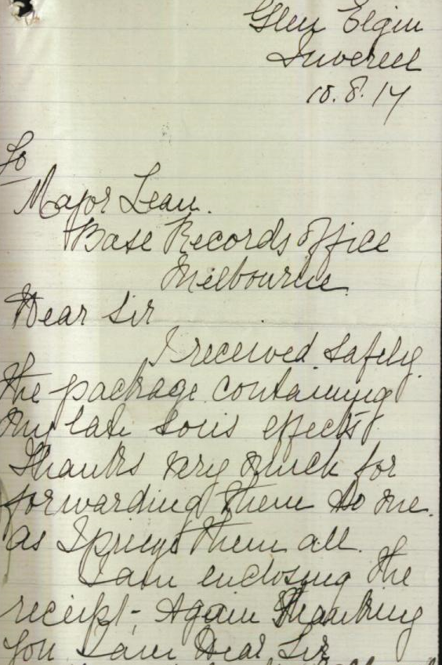 Glen Elgin
Inverell
10.8.17
To
Major Lean.
Base Records Office
Melbourne
Dear Sir
I received safely
the package containing
my late sons effects
Thanks very much for
forwarding them to me.
as I them all.
I am enclosing the
receipt - Again Thanking
you I am Dear Sir